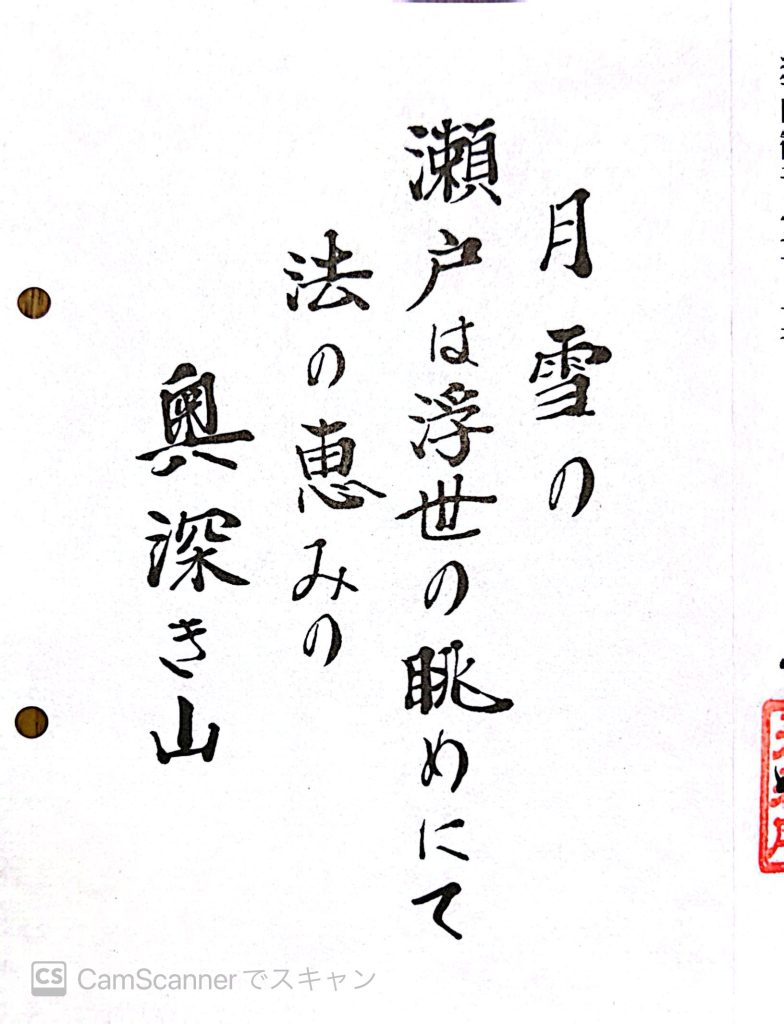 月雪の
瀬戸は浮世の眺めにて
法の恵みの
奥深き山
CS CamScannerでスキャン